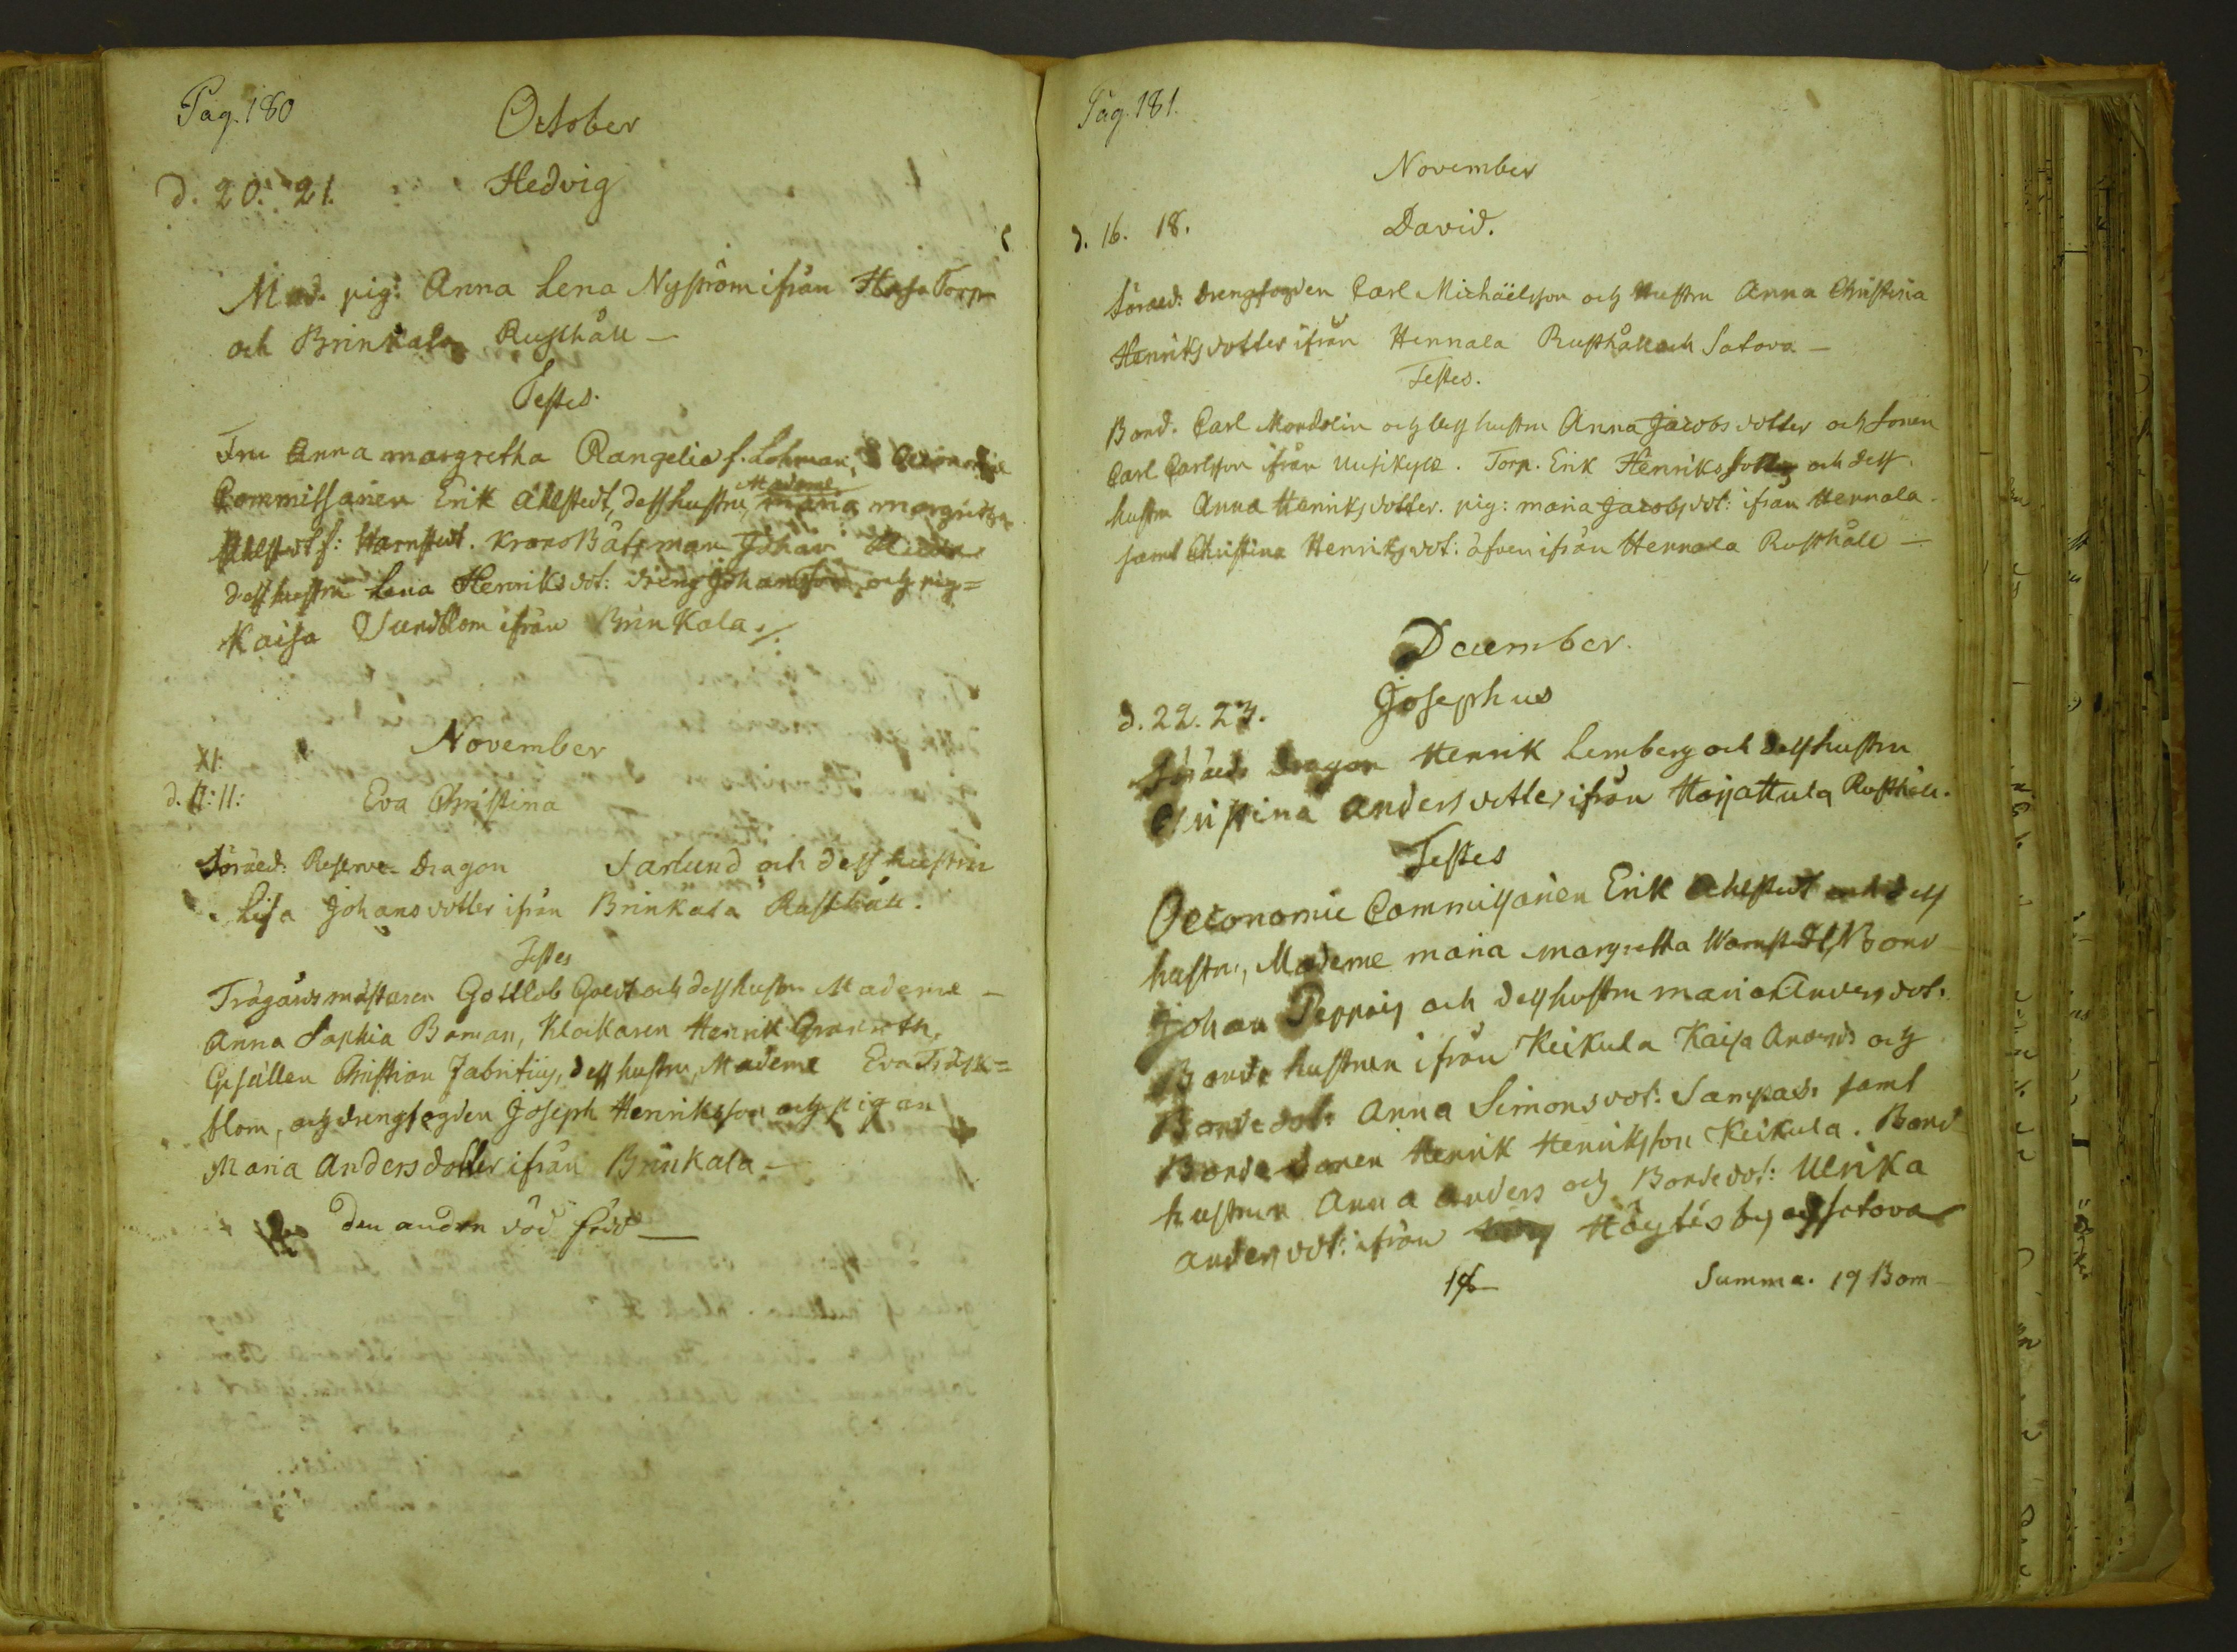 Pag. 180
October
d. 20. 21. Hedvig
Mod. pig: Anna Lena Nyström ifrån Torp
och Brinkala Rusthåll —
Testes.
Fru Anna margretha Rangelia f. Lohman,
Commissarien Erik Ahlstedt, dess hustru, Madame maria margretha
Ahlstedt f: Warnstedt. Krono Båtsman Johan
dess hustru Lena Henriksdot: dreng Johansson och pig=
Kaisa Sundblom ifrån Brinkala ./.
November
XI:
d. 11: Eva Christina
Föräld: Reserve Dragon Sarlund och dess hustru
Lisa Johansdotter ifrån Brinkala Rusthåll.
Testes
Trägårdsmästaren Gottlob Goldt och dess hustru Madame —
Anna Sophia Boman, Klockaren Henrik Granroth,
Gesällen Christian Fabritius, dess hustru, Madame Eva Träsk=
blom, och drengfogden Joseph Henriksson och pigan
Maria Andersdotter ifrån Brinkala —
den andra död född —
Pag. 181.
November
d. 16. 18. David.
Föräld: drengfogden Carl Michäelsson och Hustru Anna Christina
Henriksdotter ifrån Hennala Rusthåll och Satava —
Testes.
Bond. Carl Mondolin och dess hustru Anna Jacobsdotter och Sonen
Carl Carlsson ifrån Uusikylä. Torp. Erik Henriksson och dess
hustru Anna Henriksdotter. pig: maria Jacobsdot: ifrån Hennala
samt Christina Henriksdot: äfven ifrån Hennala Rusthåll —
December.
d. 22. 23. Josephus
Föräld: Dragon Henrik Lemberg och dess hustru
Christina Andersdotter ifrån Harjattula Rusthåll.
Testes
Oeconomie Commissarien Erik Ahlstedt och dess
hustru, Madame maria margretha Warnstedt, Bond
Johan Peppois och dess hustru maria Andersdot:
Bonde hustrun ifrån Keikula Kaisa Anders och
Bondedot: Anna Simonsdot: Sampas: samt
Bonde sonen Henrik Henriksson Keikula. Bond
hustrun Anna Anders och Bondedot: Ulrika
Andersdot: ifrån Höglésby och Satava
18 Summa. 19 Barn —